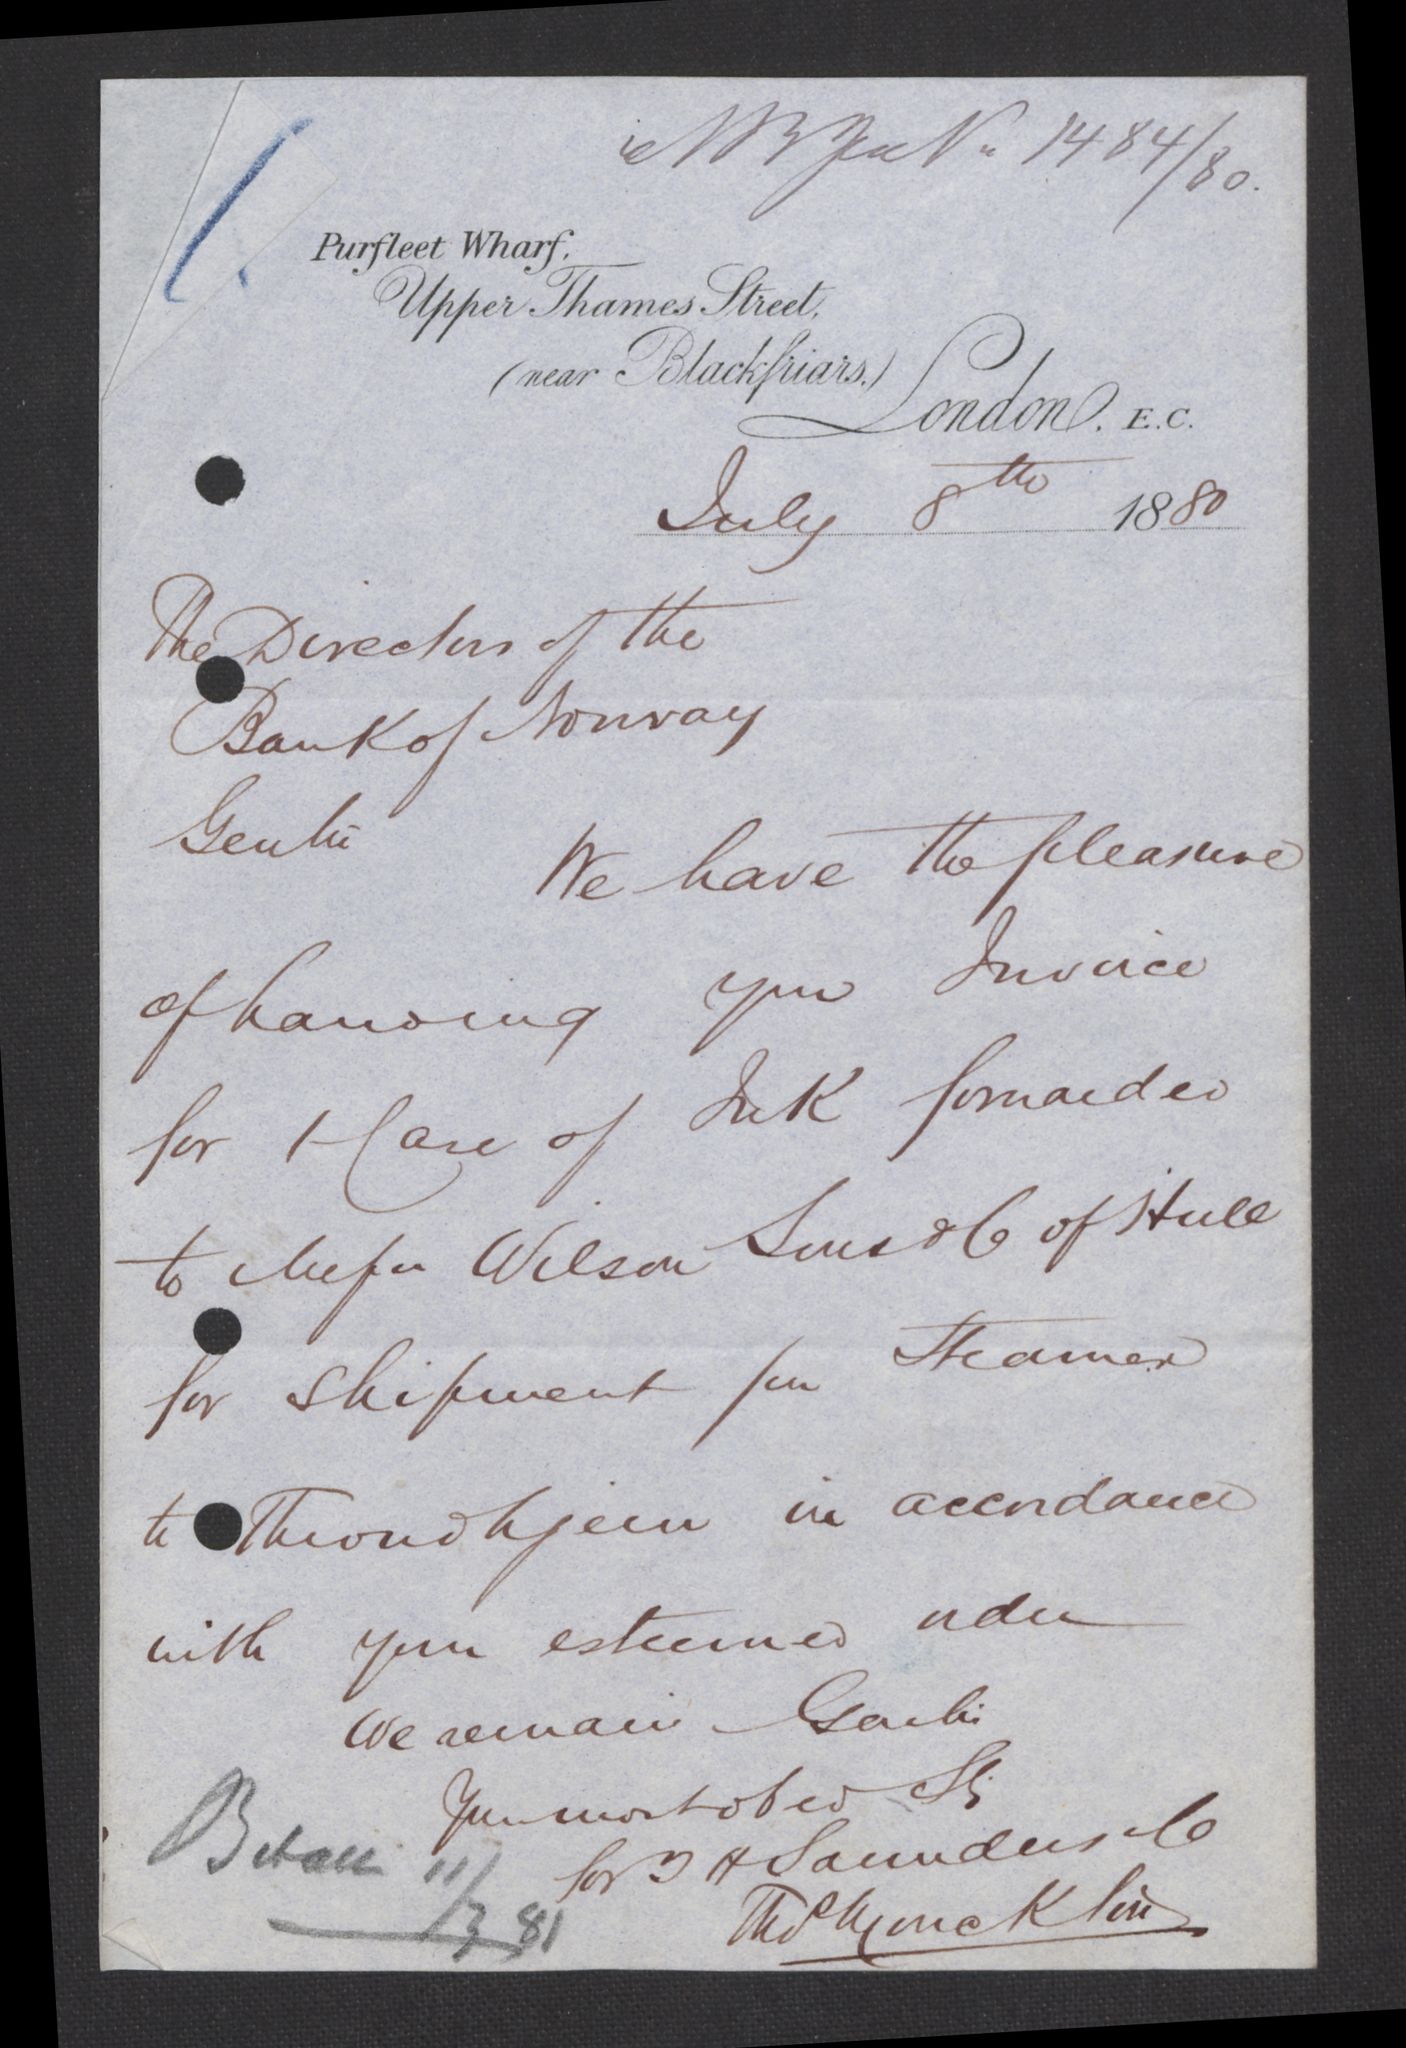 NB Jour No 1484/80.
Purfleet Wharf,
Upper Thames Street,
(near Blackfriars.)
London. E.C.
July 8th 1880
The Directors of the
Bank of Norway
Gentn
We have the pleasure
of handing you Invoice
for 1 Case of Ink forwarded
to Messrs Wilson Sons & Co of Hull
for shipment per Steamer
to Throndhjem in accordance
with your esteemed order
We remain Gentn
Your most obed St
for T H Saunders & Co
Thos
Betalt 11/3 81